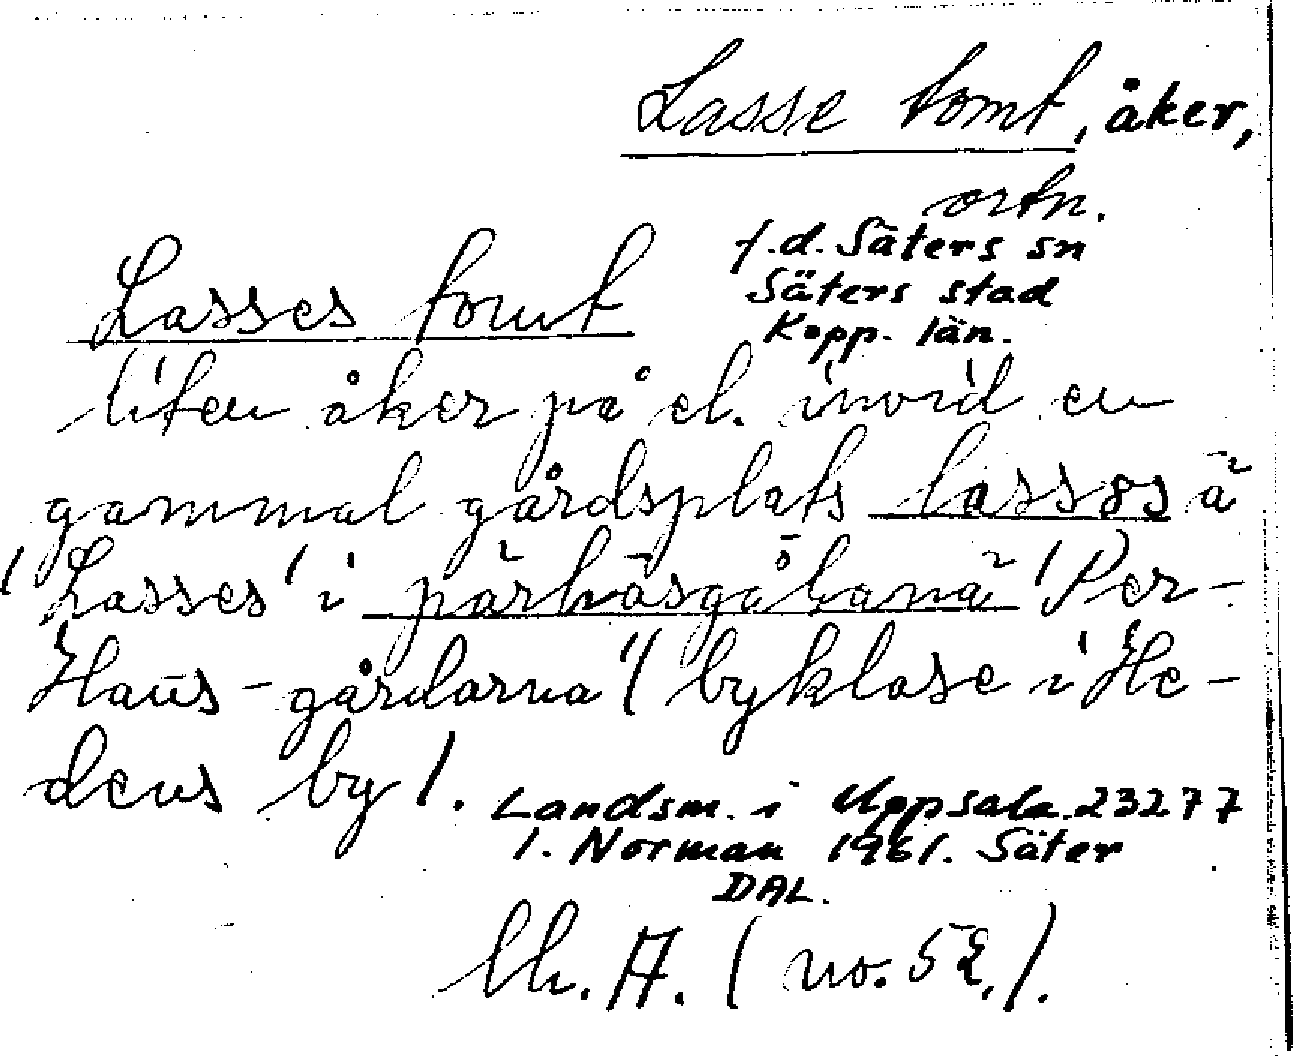 Lasse tomt, åker,
ortn.
f.d. Säters sn
Säters stad
Kopp. län.
Lasses tomt
liten åker på el. invid en
gammal gårdsplats lassəs ä
'Lasses' i pärhäsgäƚanä 'Per-
Hans-gårdarna' (byklase i He-
dens by).
Landsm. i Uppsala 23277
I. Norman 1961. Säter
DAL.
lh. A. (no. 52.).